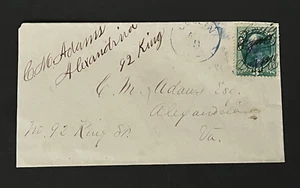 C M Adams
Alexandria
92 King
C. M. Adams Esq.
Alexandria
No. 92 King St.
Va.